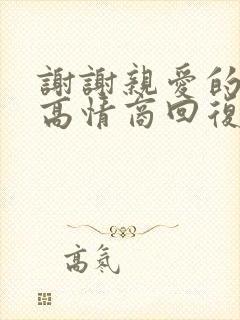 謝謝親愛的
高情商回復
高氣